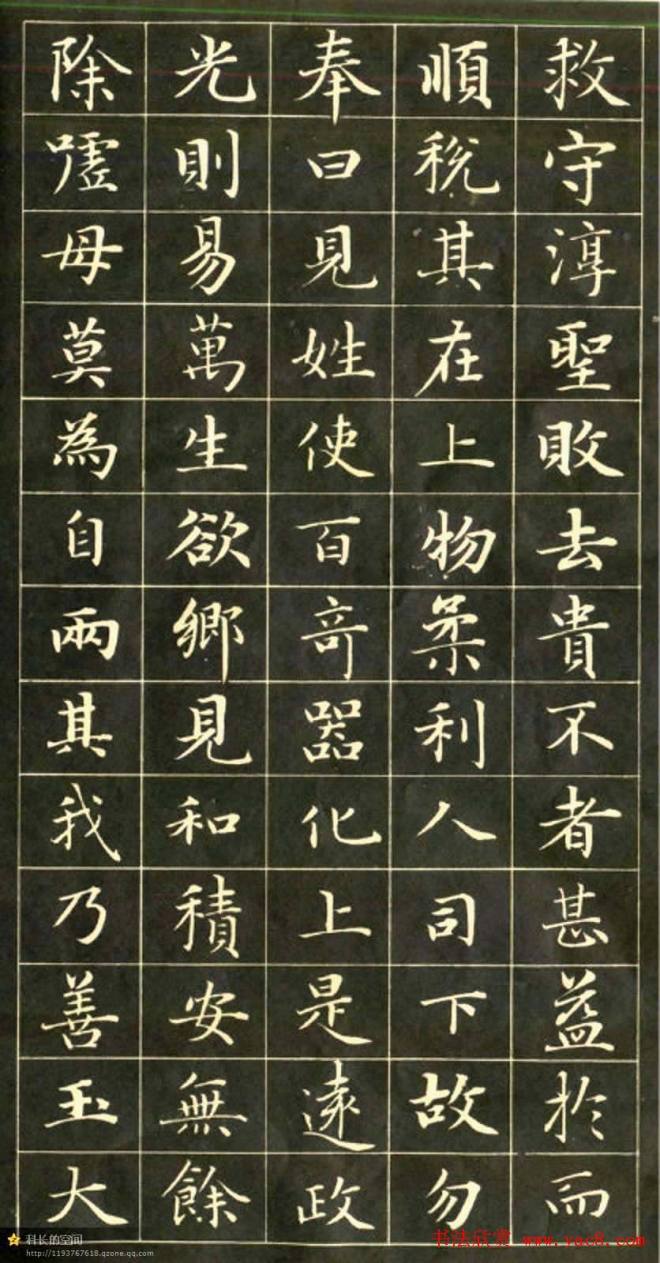 救守淳聖敗去貴不者甚益於而
順稅其在上物柔利人司下故勿
奉曰見姓使百奇器化上是遠政
光則易萬生欲鄉見和積安無餘
除噓毋莫為自兩其我乃善玉大
科长的空间
http://1193767618.qzone.qq.com
书法欣赏 www.yac8.com